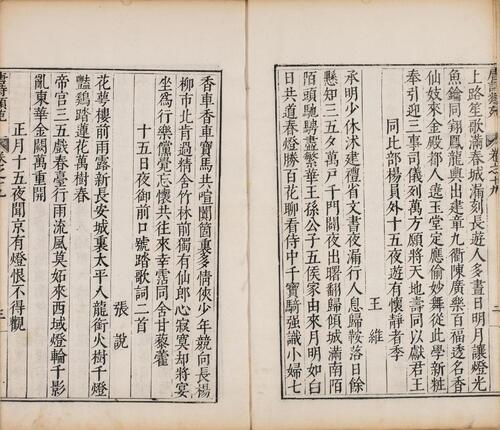 上路笙歌滿春城漏刻長遊人多晝日明月讓燈光
魚鑰同翔鳳龍輿出建章九衢陳廣樂百福透名香
仙妓來金殿都人遶玉堂定應偷妙舞從此學新粧
奉引迎三事司儀列萬方願將天地壽同以獻君王
同比部楊員外十五夜遊有懷靜者季
王維
承明少休沐建禮省文書夜漏行人息歸鞍落日餘
懸知三五夕萬戶千門闢夜出曙翻歸傾城滿南陌
陌頭馳騁盡繁華王孫公子五侯家由來月明如白
日共道春燈勝百花聊看侍中千寶騎強識小婦七
香車香車寶馬共喧闐箇裏多情俠少年競向長楊
柳市北肯過精舍竹林前獨有仙郎心寂寞却將宴
坐為行樂儻覺忘懷共往來幸霑同舍甘藜藿
十五日夜御前口號踏歌詞二首
張說
花萼樓前雨露新長安城裏太平人龍銜火樹千燈
豔鷄踏蓮花萬樹春
帝宮三五戲春臺行雨流風莫妬來西域燈輪千影
亂東華金闕萬重開
正月十五夜聞京有燈恨不得觀